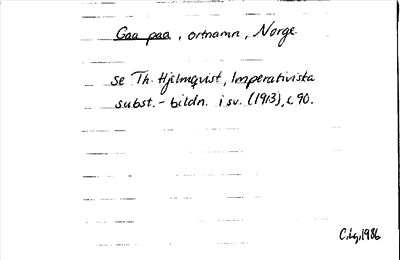 Gaa paa, ortnamn, Norge
se Th. Hjelmqvist, Imperativiska
subst.-bildn. i sv. (1913), s. 90.
1986